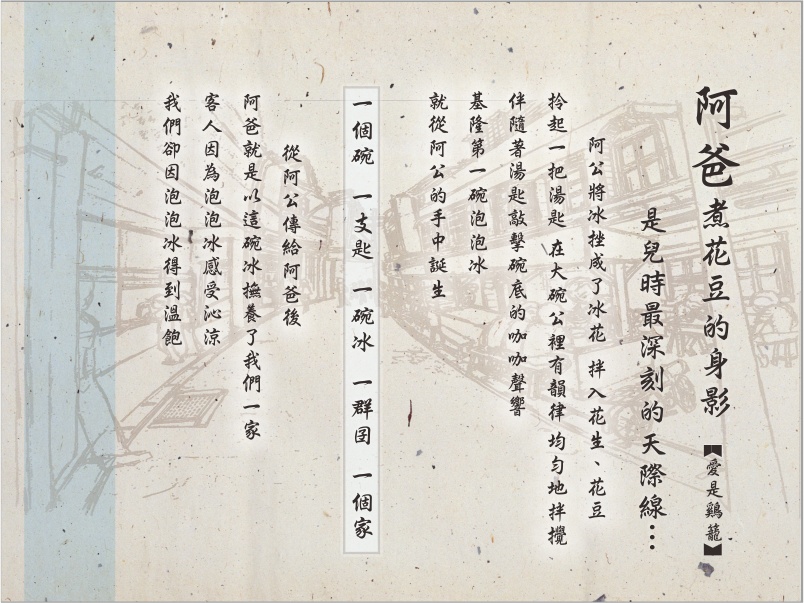 阿爸煮花豆的身影【愛是鷄籠】
是兒時最深刻的天際線…
阿公將冰挫成了冰花 拌入花生、花豆
拎起一把湯匙 在大碗公裡有韻律 均勻地拌攪
伴隨著湯匙敲擊碗底的咖咖聲響
基隆第一碗泡泡冰
就從阿公的手中誕生
一個碗 一支匙 一碗冰 一群囝 一個家
從阿公傳給阿爸後
阿爸就是以這碗冰撫養了我們一家
客人因為泡泡冰感受沁涼
我們卻因泡泡冰得到溫飽